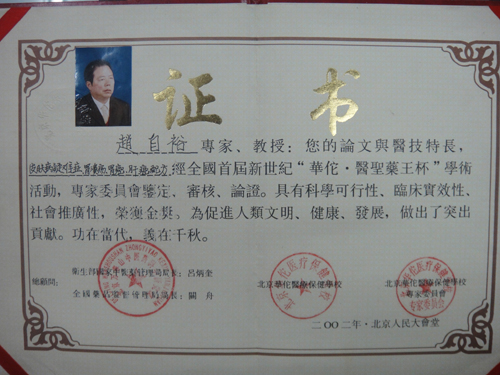 证书
趙自裕專家、教授：您的論文與醫技特長，
經全國首屆新世纪“華佗·醫聖藥王杯”學術
活動，專家委員會鑒定、審核、論證。具有科學可行性、臨床實效性、
社會推廣性，榮獲金獎。為促進人類文明、健康、發展，做出了突出
貢獻。功在當代，義在千秋。
總顧問：
衛生部國家中醫藥管理局局長：呂炳奎
全國藥品管理局局長：關舟
北京華佗醫療保健學校
北京華佗醫療保健學校
專家委員會
二〇〇二年·北京人民大會堂